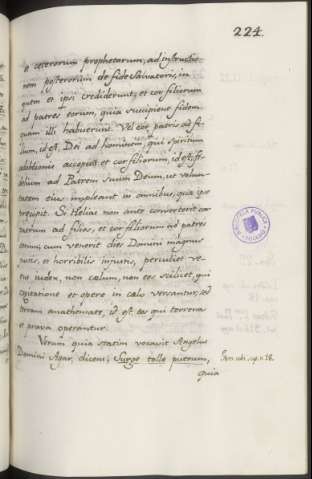 224.
et ceterorum prophetarum, ad instructio-
nem posterorum de fide Salvatoris, in
quem et ipsi crediderunt, et cor filiorum
ad patres eorum, quia suscipient fidem
quam illi habuerunt. Vel cor patris ad fi-
lium, id est Dei ad hominem, qui spiritum
adoptionis accepit, et cor filiorum, id est fi-
delium ad Patrem suum Deum, ut volun-
tatem eius impleant in omnibus, quæ ipse
precepit. Si Helias non ante converterit cor
patrum ad filios, et cor filiorum ad patres
eorum, cum venerit dies Domini magnus
et horribilis injustis, percutiet ve-
rus iudex, non cœlum, non eos scilicet, qui
cogitatione et opere in cœlo versantur, sed
terram anathemate, id est eos qui terrena
et prava operantur.
Verum quia statim vocavit Angelus
Domini Agar, dicens; Surge tolle puerum,
quia
cap. 18.
BIBLIOTECA PUBLICA